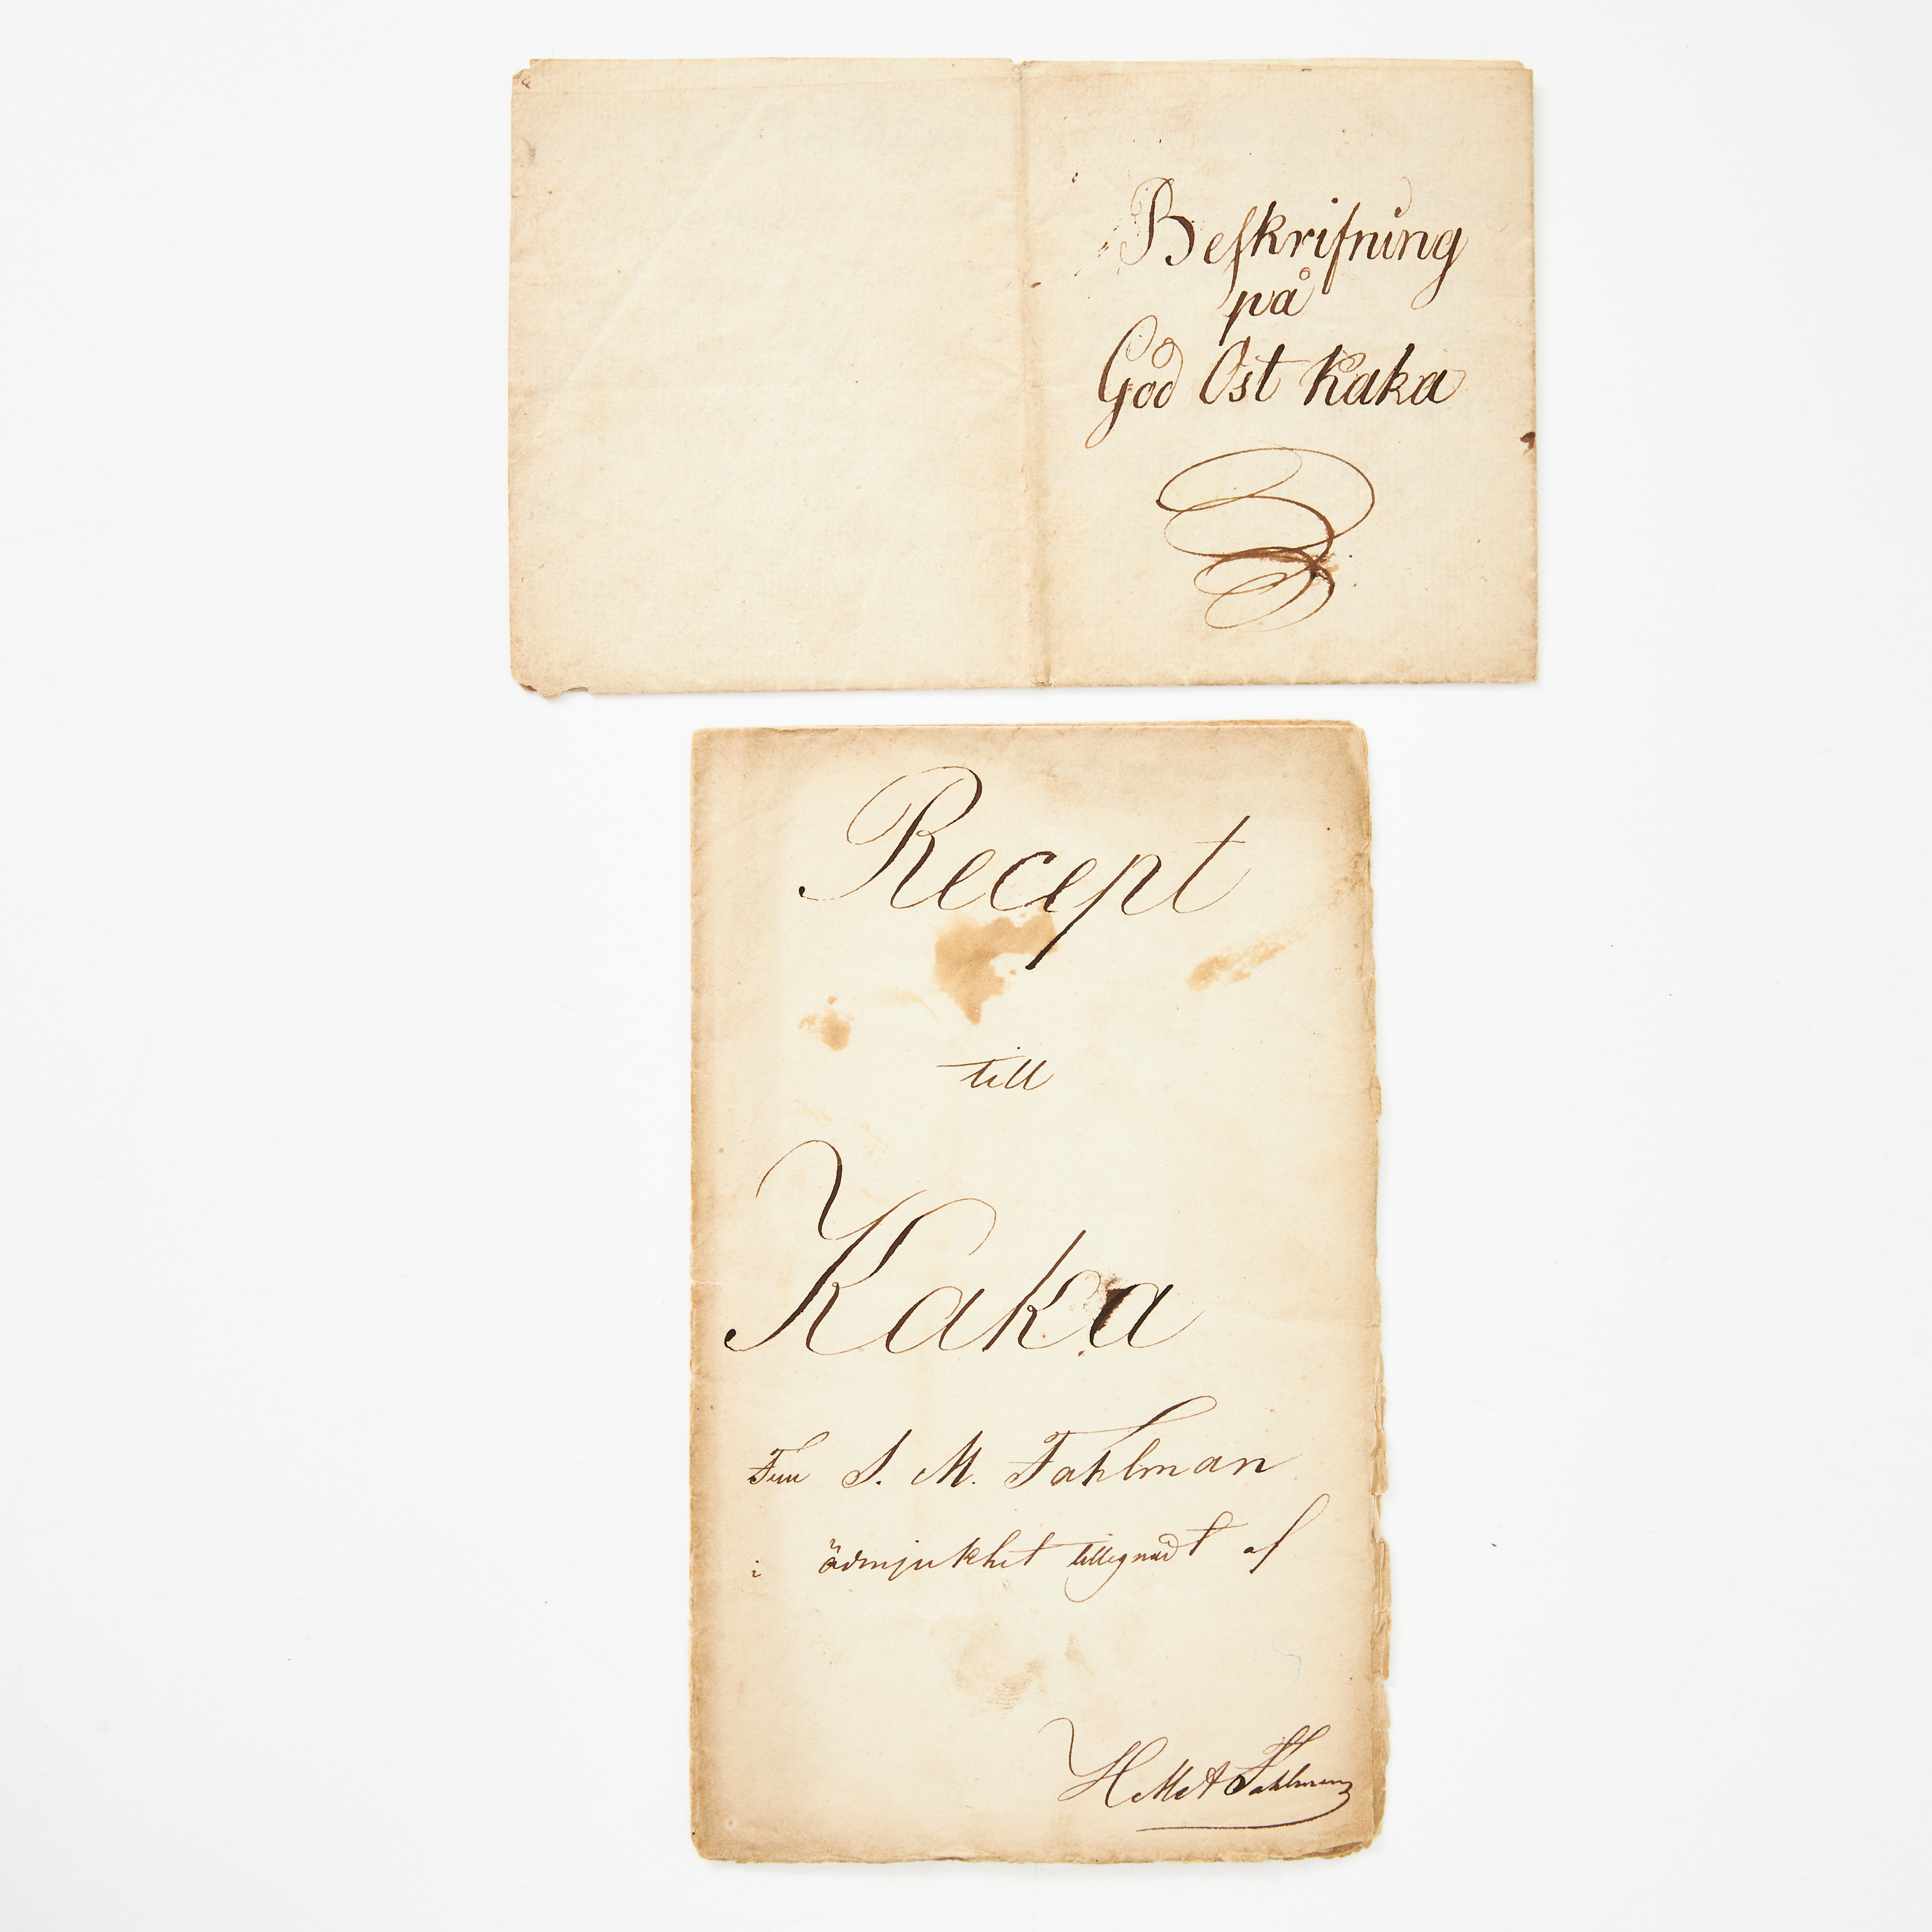 Beskrifning
på
God Ost Kaka
Recept
till
Kaka
S. M. Fahlman
i ödmjukhet tillegnadt af
Fahlman